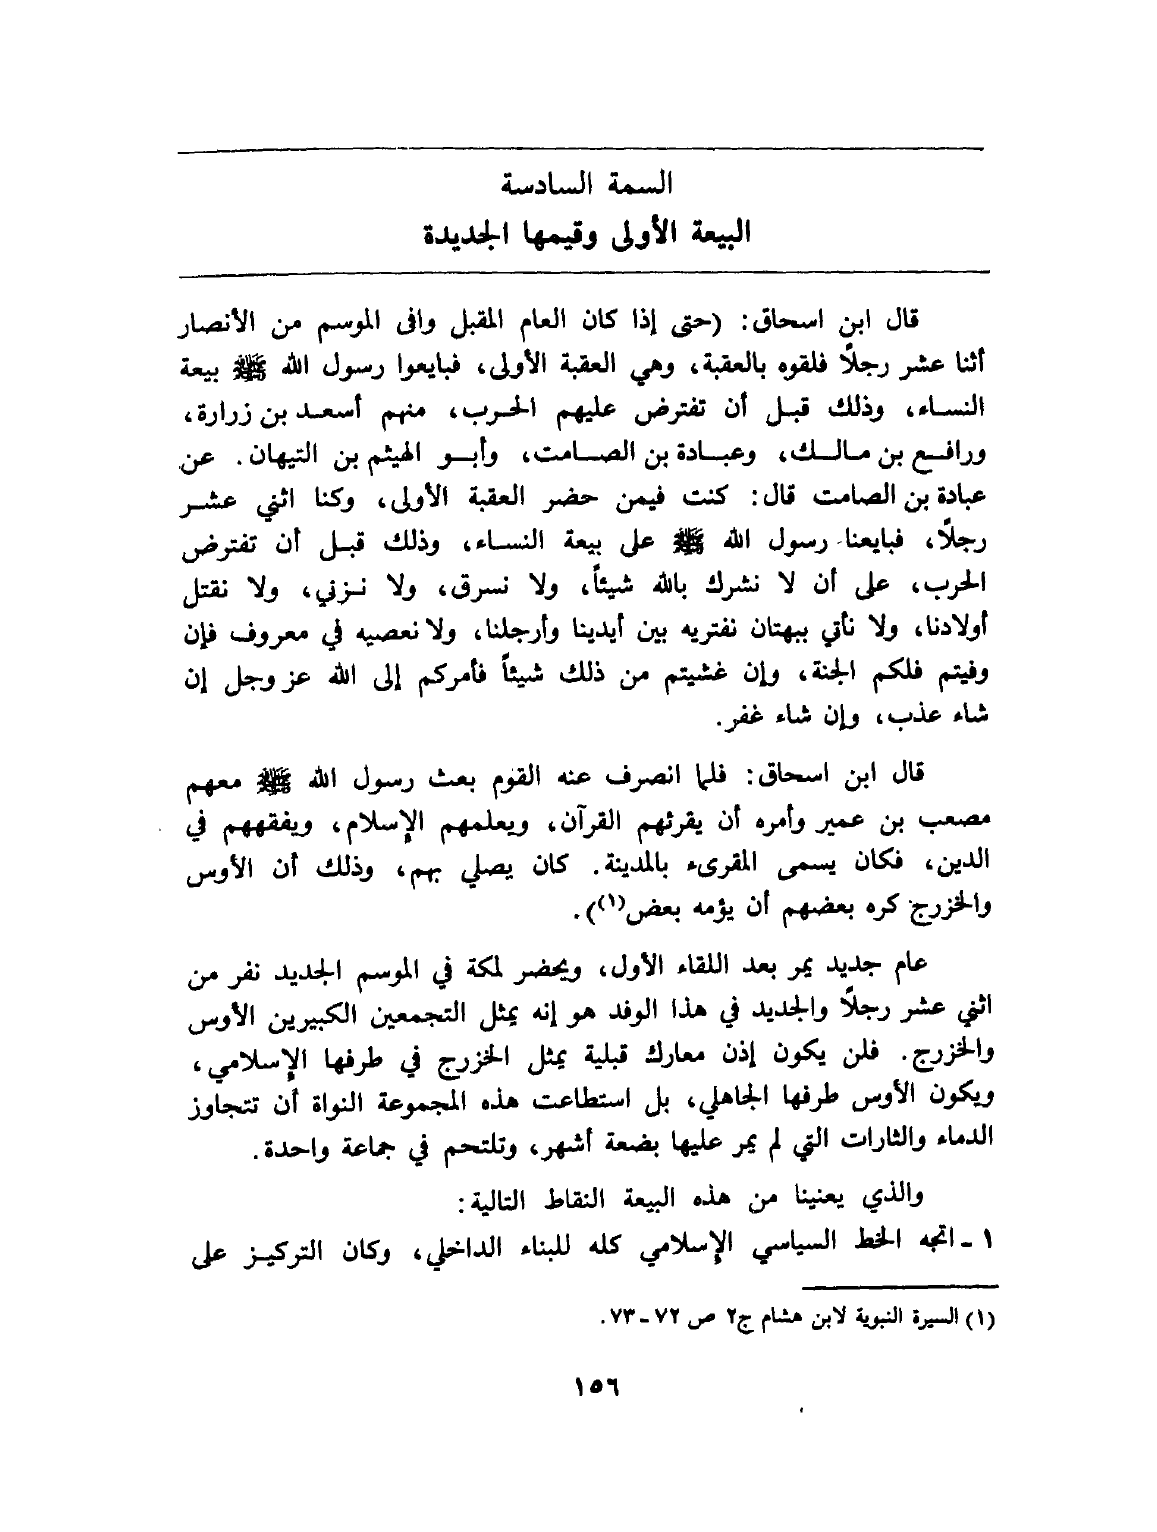 السمة السادسة
البيعة الأولى وقيمها الجديدة
قال ابن اسحاق: (حتى إذا كان العام المقبل وافى الموسم من الأنصار
أثنا عشر رجلاً فلقوه بالعقبة، وهي العقبة الأولى، فبايعوا رسول الله ﷺ بيعة
النساء، وذلك قبل أن تفترض عليهم الحرب، منهم أسعد بن زرارة،
ورافع بن مالك، وعبادة بن الصامت، وأبو الهيثم بن التيهان. عن
عبادة بن الصامت قال: كنت فيمن حضر العقبة الأولى، وكنا اثني عشر
رجلاً، فبايعنا رسول الله ﷺ على بيعة النساء، وذلك قبل أن تفترض
الحرب، على أن لا نشرك بالله شيئاً، ولا نسرق، ولا نزني، ولا نقتل
أولادنا، ولا نأتي ببهتان نفتريه بين أيدينا وأرجلنا، ولا نعصيه في معروف فإن
وفيتم فلكم الجنة، وإن غشيتم من ذلك شيئاً فأمركم إلى الله عز وجل إن
شاء عذب، وإن شاء غفر.
قال ابن اسحاق: فلما انصرف عنه القوم بعث رسول الله ﷺ معهم
مصعب بن عمير وأمره أن يقرئهم القرآن، ويعلمهم الإسلام، ويفقههم في
الدين، فكان يسمى المقرىء بالمدينة. كان يصلي بهم، وذلك أن الأوس
والخزرج كره بعضهم أن يؤمه بعض(١)).
عام جديد يمر بعد اللقاء الأول، ويحضر لمكة في الموسم الجديد نفر من
اثني عشر رجلاً والجديد في هذا الوفد هو إنه يمثل التجمعين الكبيرين الأوس
والخزرج. فلن يكون إذن معارك قبلية يمثل الخزرج في طرفها الإسلامي،
ويكون الأوس طرفها الجاهلي، بل استطاعت هذه المجموعة النواة أن تتجاوز
الدماء والثارات التي لم يمر عليها بضعة أشهر، وتلتحم في جماعة واحدة.
والذي يعنينا من هذه البيعة النقاط التالية:
١ - اتجه الخط السياسي الإسلامي كله للبناء الداخلي، وكان التركيز على
(١) السيرة النبوية لابن هشام ج٢ ص ٧٢ - ٧٣.
١٥٦